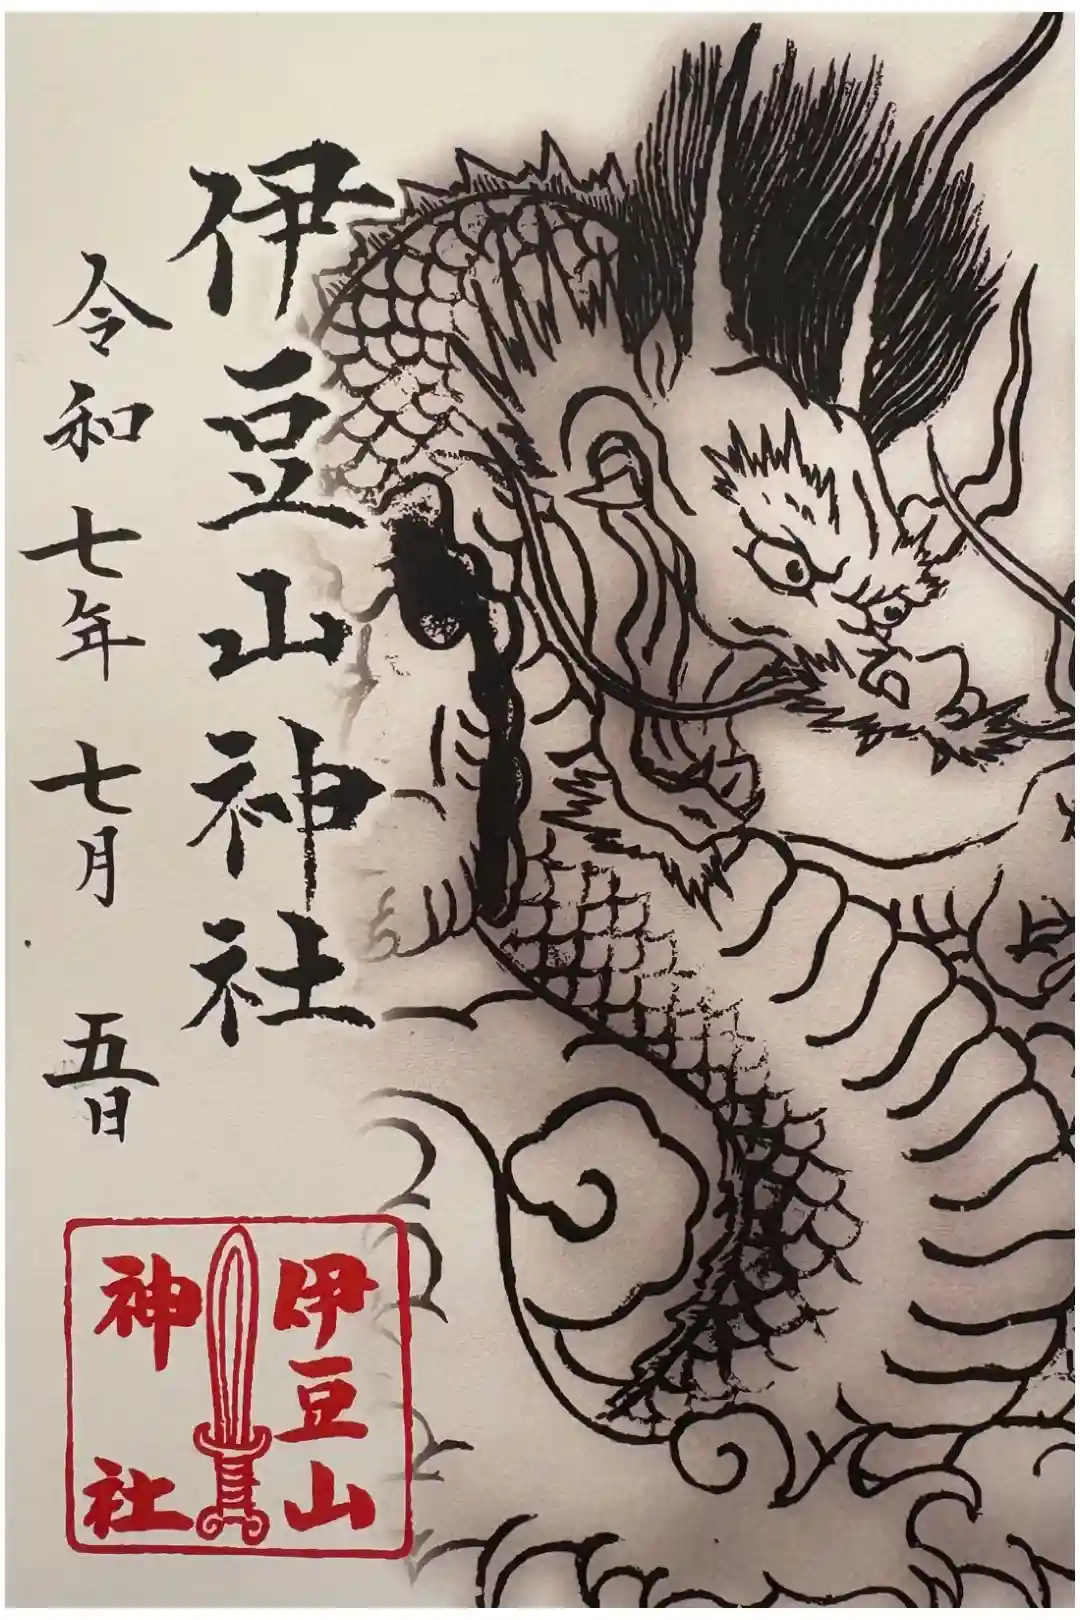 伊豆山神社
令和七年 七月 五日
伊豆山
神社